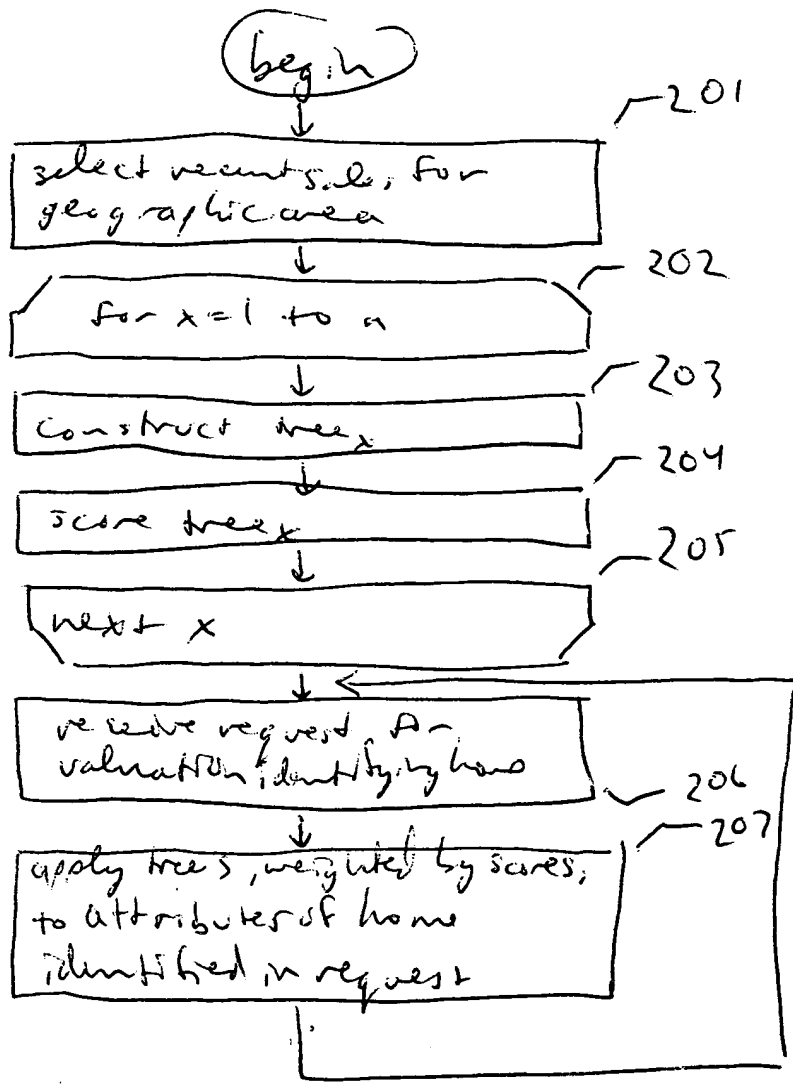 begin
201
select recent sales for
geographic area
202
for x = 1 to n
203
construct tree x
204
score tree x
205
next x
receive request for
valuation identifying home
206
207
apply trees, weighted by scores,
to attributes of home
identified in request